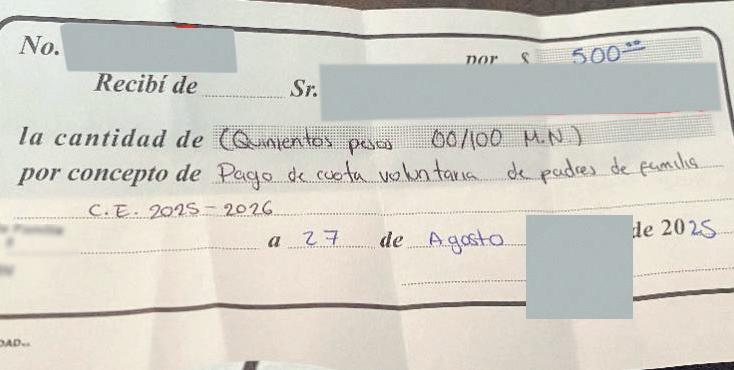 No. por $ 500.00
Recibí de Sr.
la cantidad de (Quinientos pesos 00/100 M.N.)
por concepto de Pago de cuota voluntaria de padres de familia
C.E. 2025-2026
a 27 de Agosto de 2025
DAD..